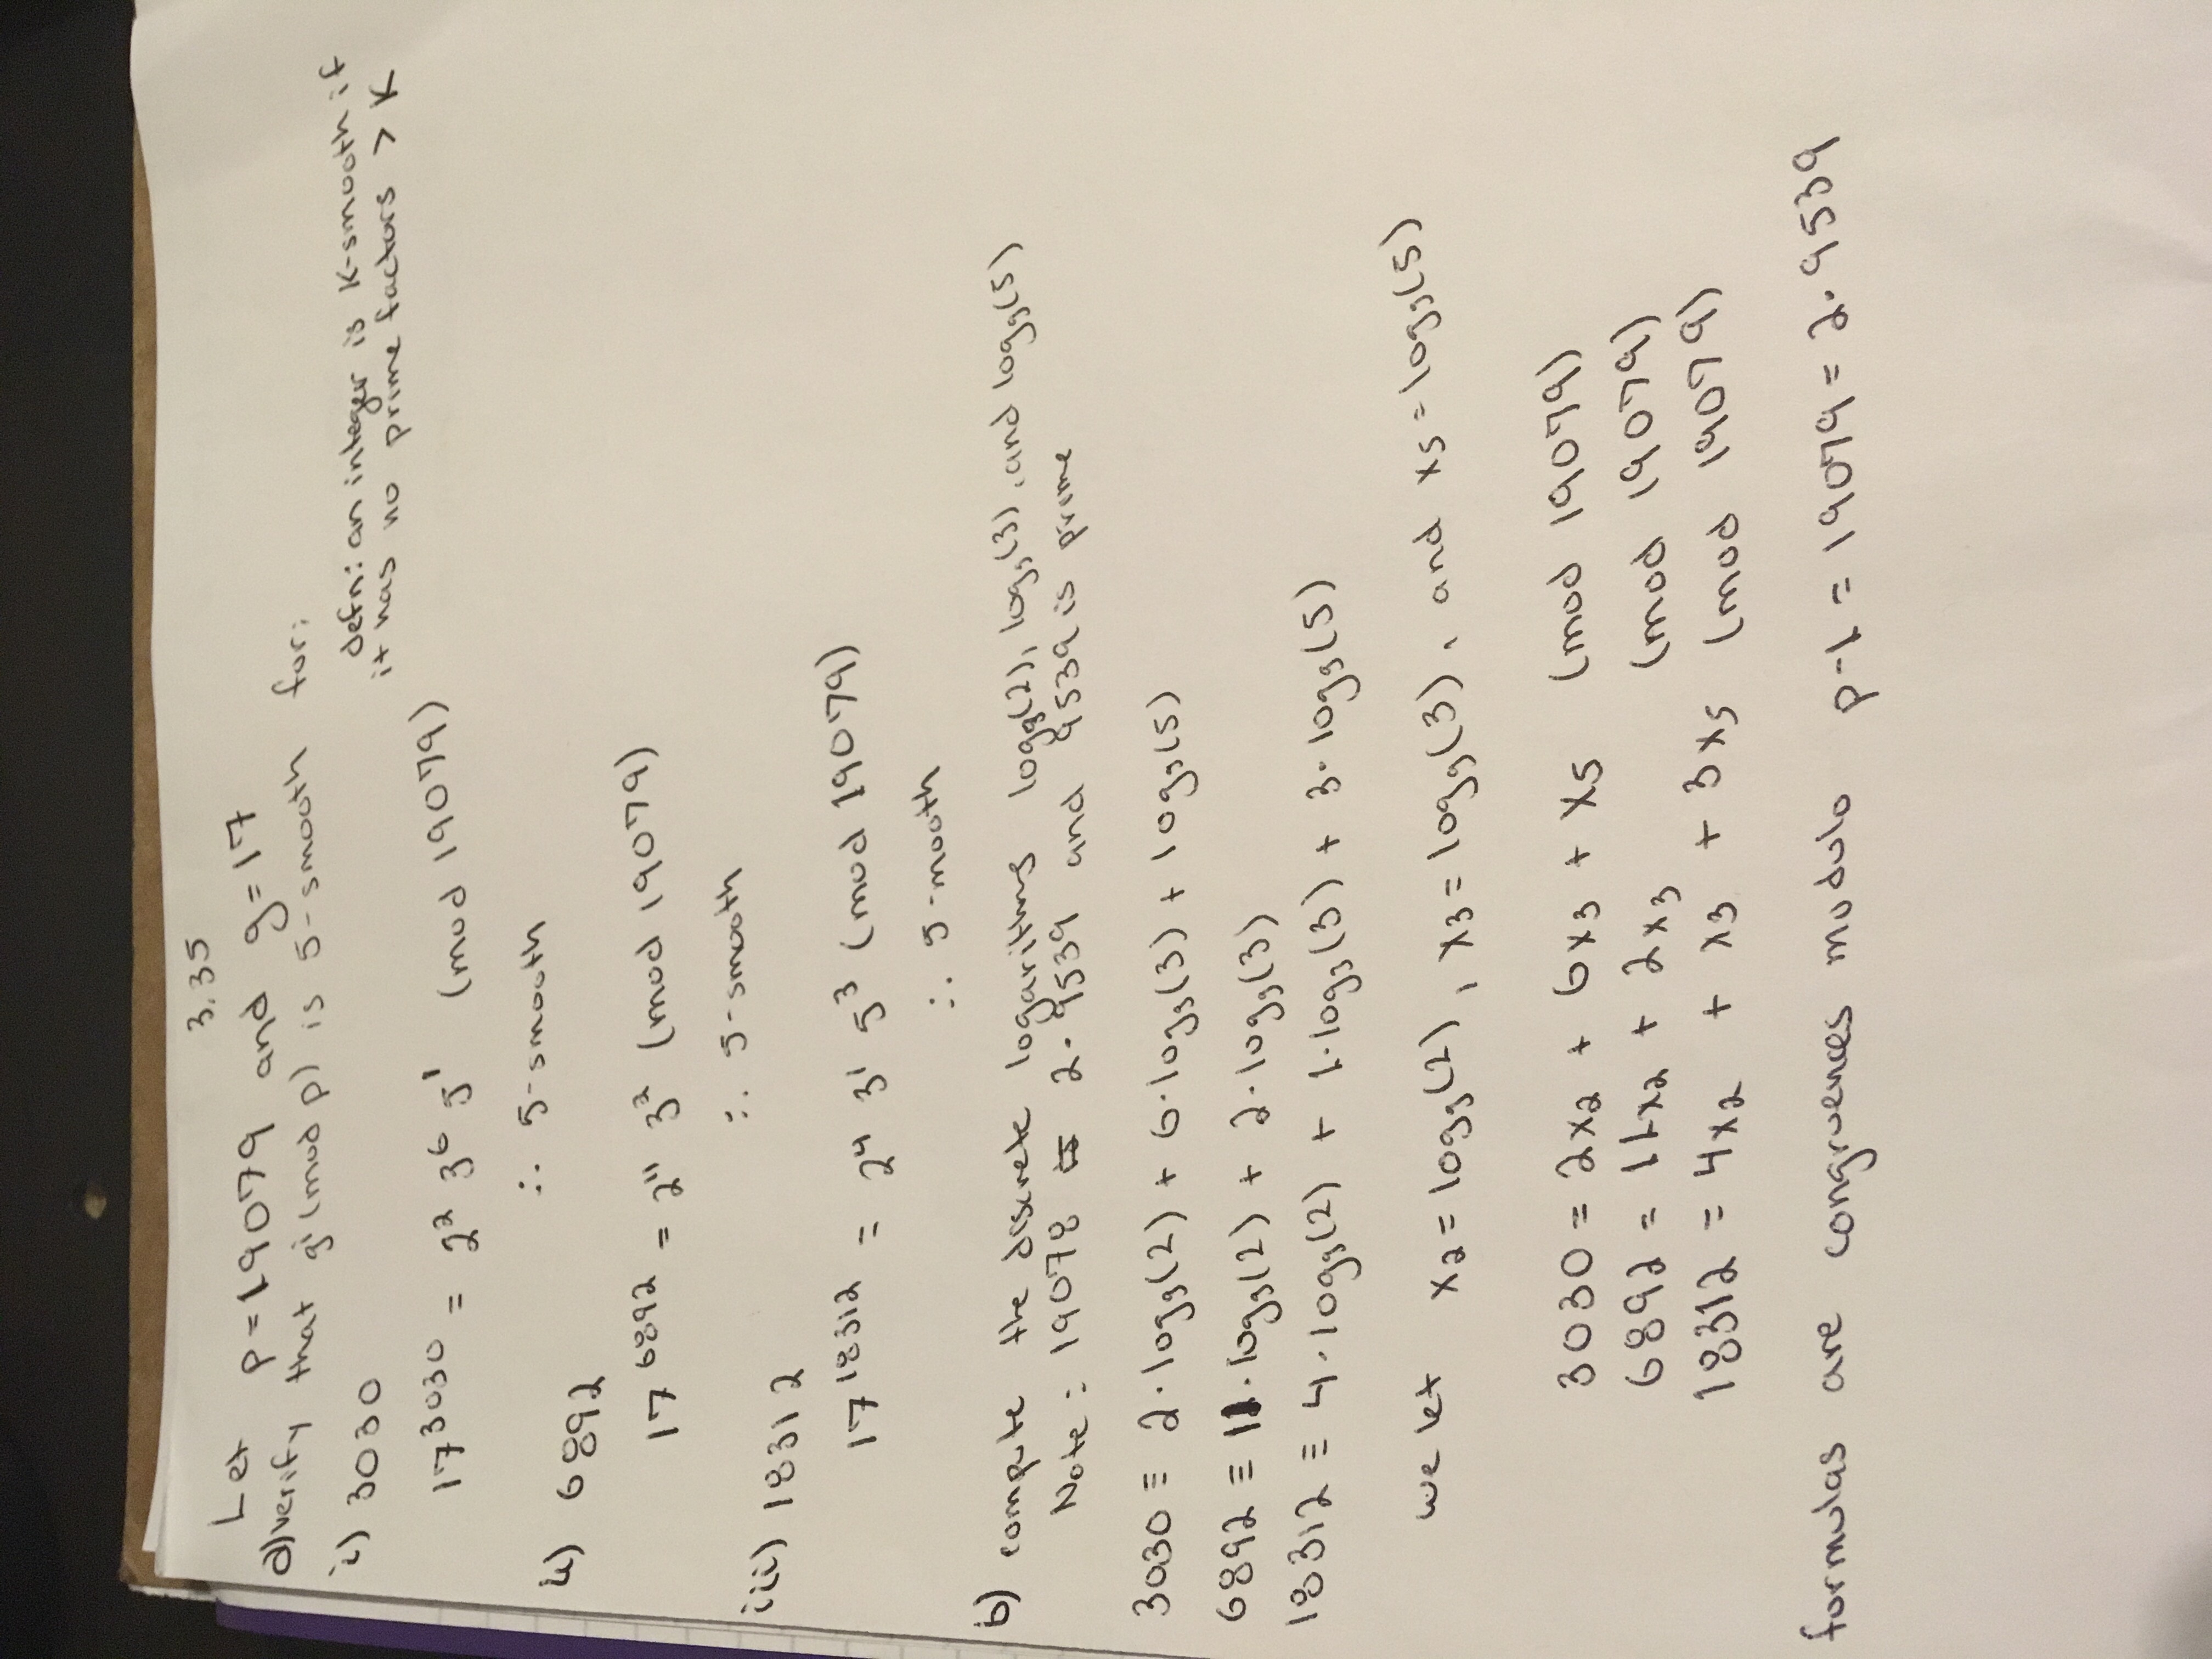 3.35
Let p=19079 and g=17
a) verify that gⁱ (mod p) is 5-smooth for:
i) 3030
defn: an integer is K-smooth if
it has no prime factors > K
17³⁰³⁰ = 2² 3⁶ 5¹ (mod 19079)
∴ 5-smooth
ii) 6892
17⁶⁸⁹² = 2¹¹ 3² (mod 19079)
∴ 5-smooth
iii) 18312
17¹⁸³¹² = 2⁴ 3¹ 5³ (mod 19079)
∴ 5-mooth
b) compute the discrete logarithms log_g(2), log_g(3), and log_g(5)
Note: 19078 is 2·9539 and 9539 is prime
3030 ≡ 2·log_g(2) + 6·log_g(3) + log_g(5)
6892 ≡ 11·log_g(2) + 2·log_g(3)
18312 ≡ 4·log_g(2) + 1·log_g(3) + 3·log_g(5)
we let x₂ = log_g(2), x₃ = log_g(3), and x₅ = log_g(5)
3030 = 2x₂ + 6x₃ + x₅ (mod 19079)
6892 = 11x₂ + 2x₃ (mod 19079)
18312 = 4x₂ + x₃ + 3x₅ (mod 19079)
formulas are congruences modulo p-1 = 19079 = 2·9539